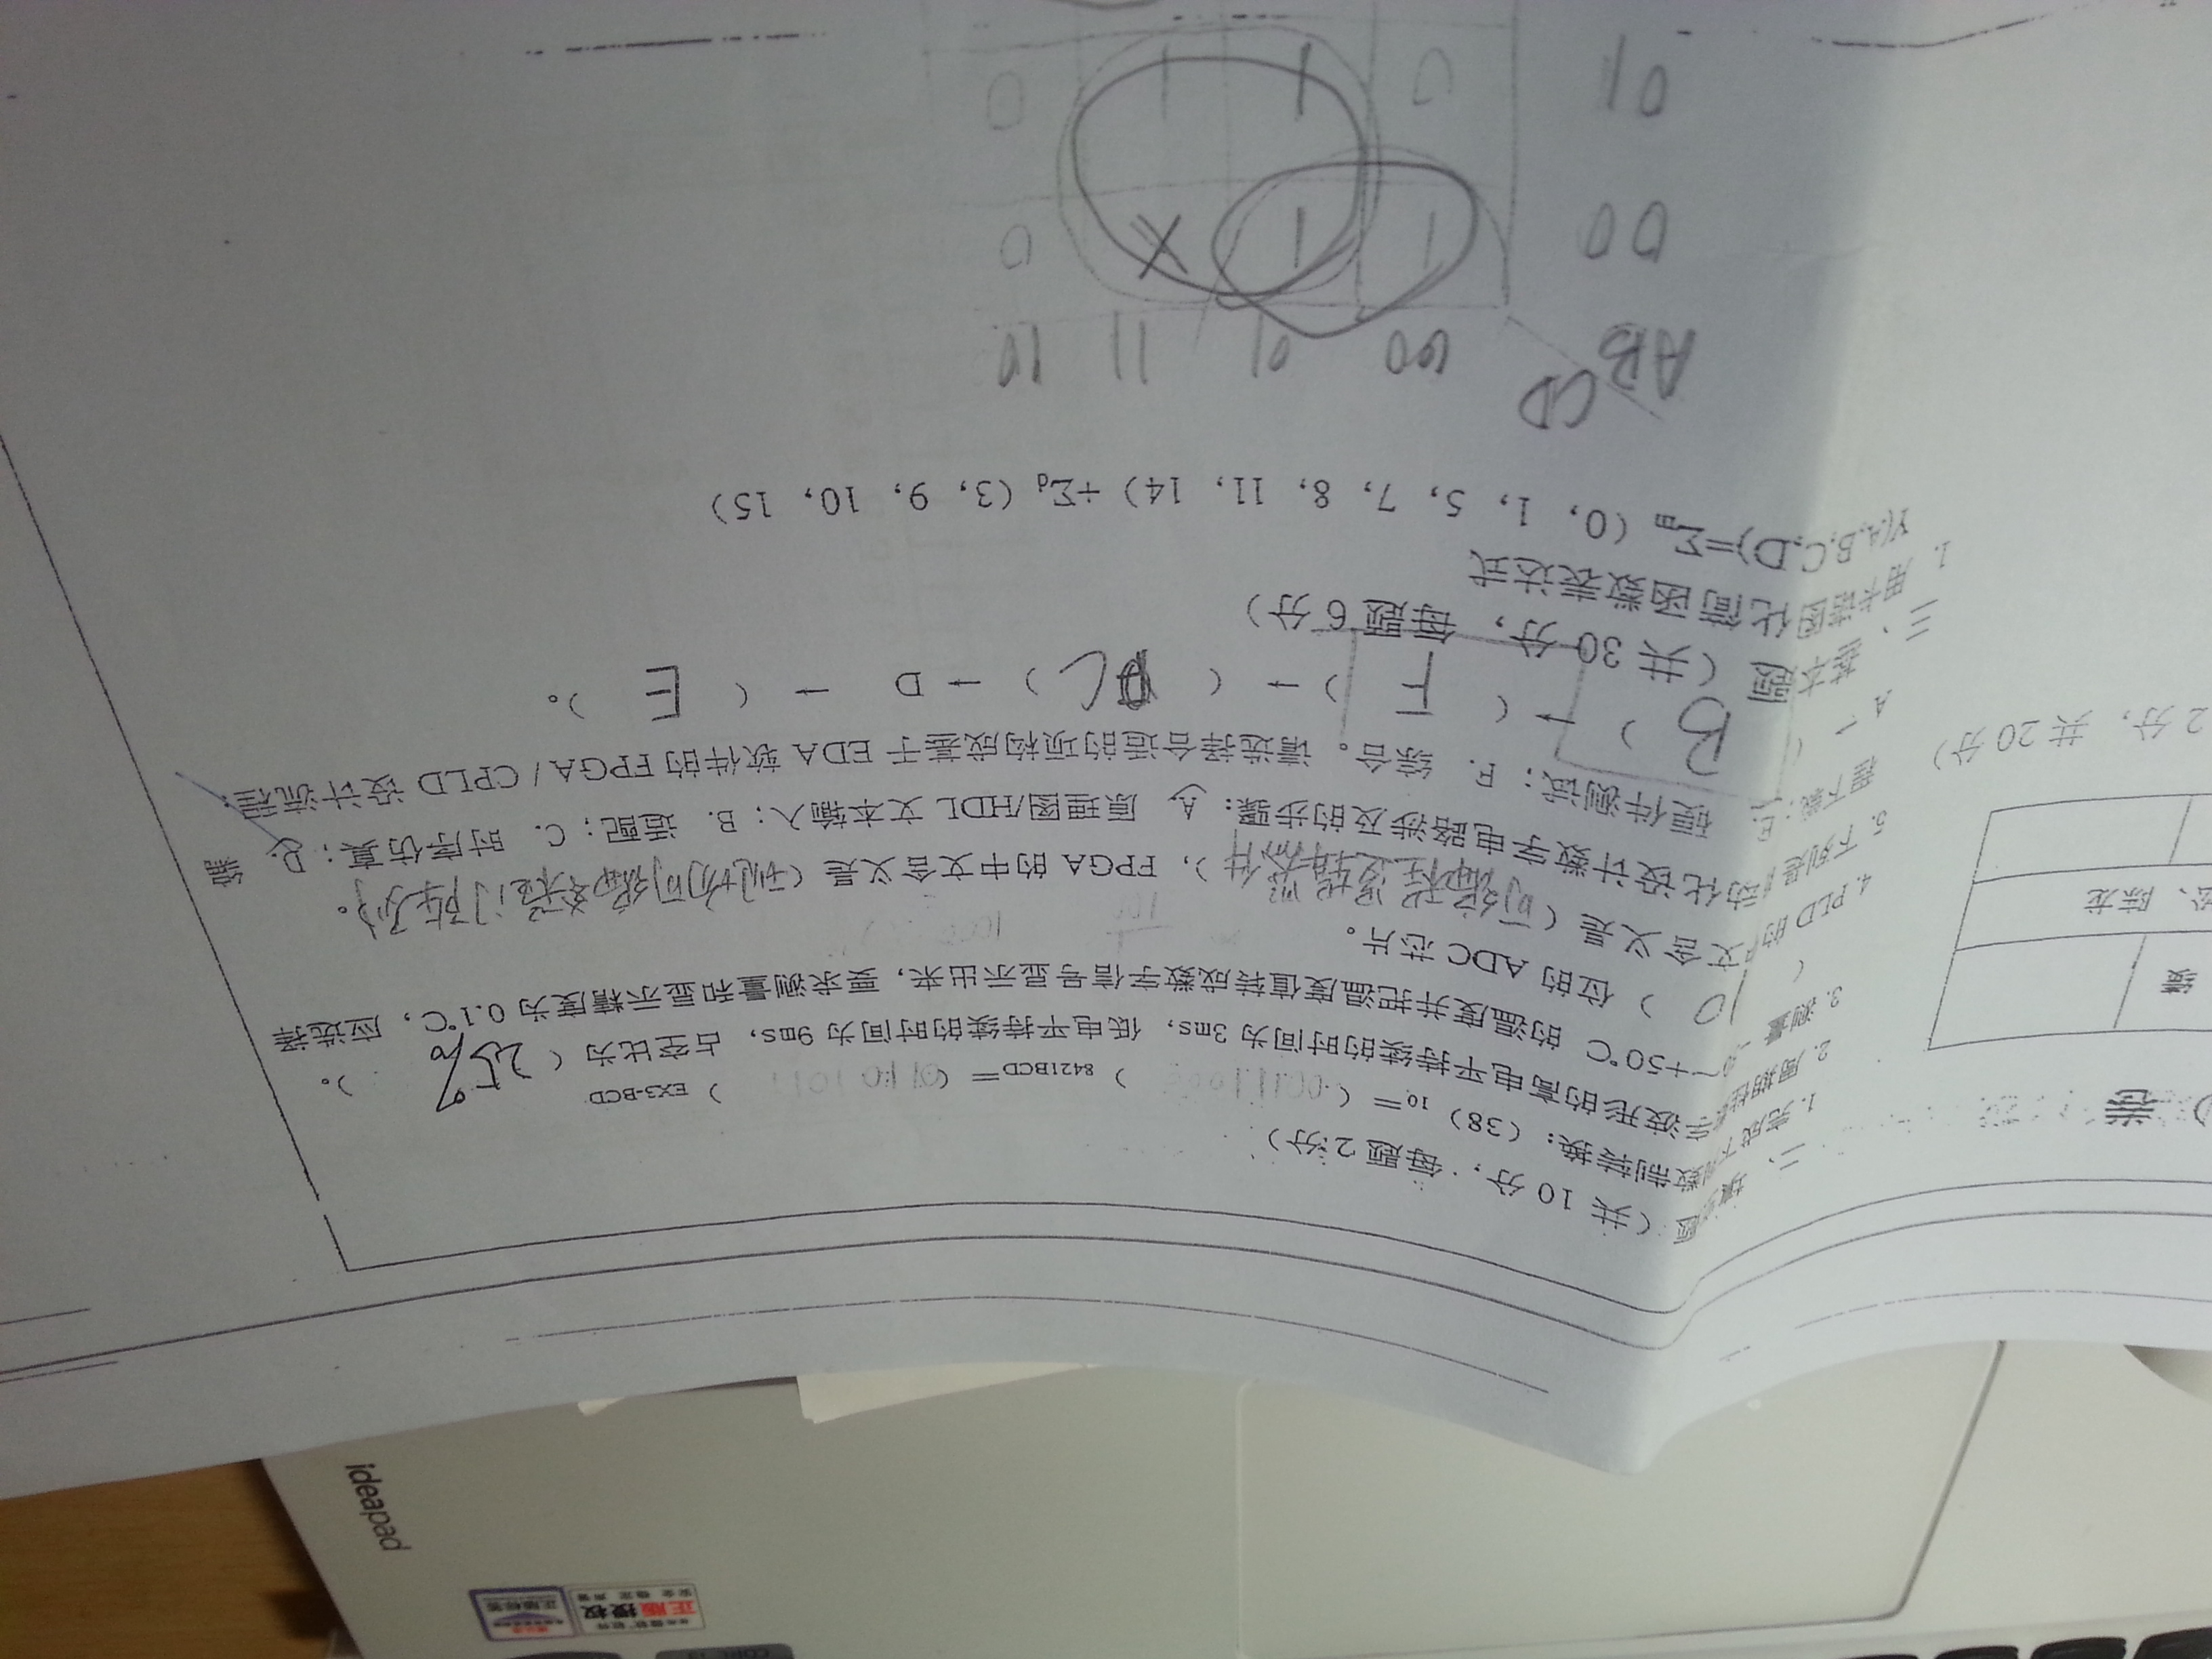 正版授权
安全 稳定 声誉
正版标签
ideapad
卷
绩
松、陈龙
2分，共20分）
二、填空题（共10分，每题2分）
1. 完成下列数制转换：（38）10＝（ ）8421BCD＝（ ）EX3-BCD
2. 周期性数字波形的高电平持续的时间为3ms，低电平持续的时间为9ms，占空比为（ 25% ）。
3. 测量 ～+50℃ 的温度并把温度值转成数字信号显示出来，要求测量和显示精度为0.1℃，应选择
（ 10 ）位的 ADC 芯片。
4. PLD 的中文含义是（可编程逻辑器件），FPGA 的中文含义是（现场可编程门阵列。
5. 下列是自动化设计数字电路涉及的步骤：A. 原理图/HDL 文本输入；B. 适配；C. 时序仿真；D. 编
程下载；E. 硬件测试；F. 综合。请选择合适的项构成基于 EDA 软件的 FPGA / CPLD 设计流程：
A →（ B ）→（ F ）→（ C ）→ D →（ E ）。
三、基本题（共30分，每题6分）
1. 用卡诺图化简函数表达式
Y(A,B,C,D)=Σm（0，1，5，7，8，11，14）+Σd（3，9，10，15）
AB CD 00 01 11 10
00 1 1 X 0
01 0 1 1 0